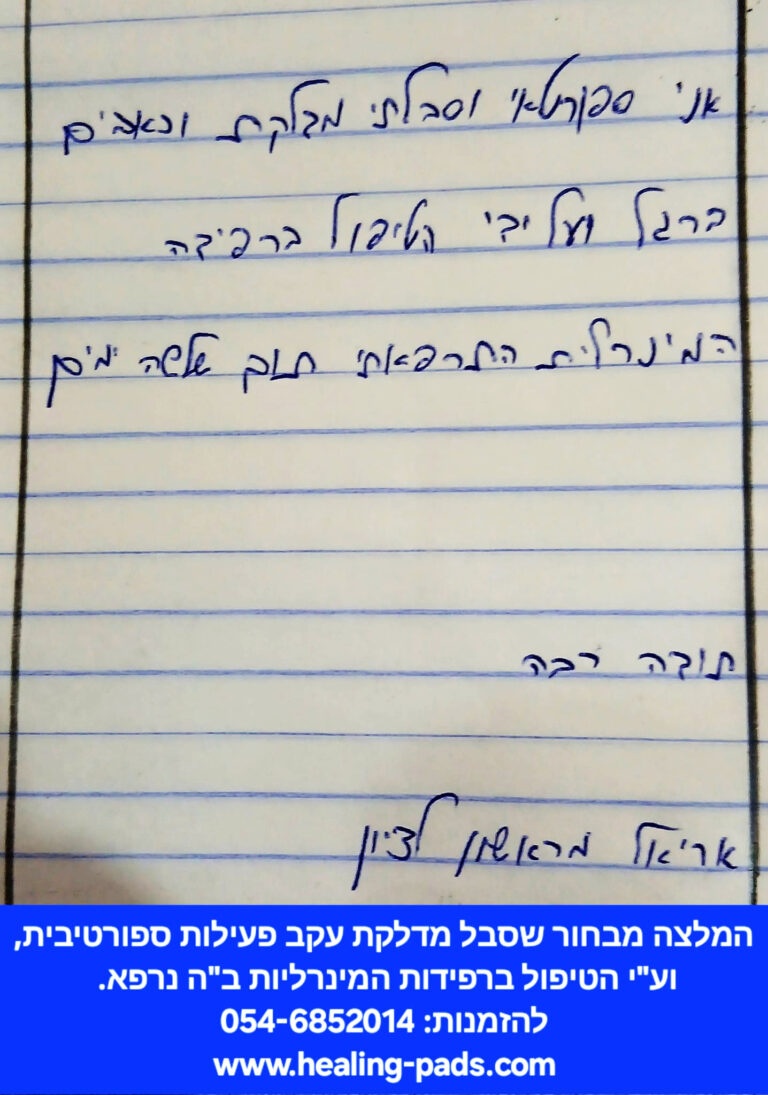 אני ספורטאי וסבלתי מדלקת וכאבים
ברגל ועל ידי הטיפול ברפידה
המינרלית התרפאתי תוך שלשה ימים
תודה רבה
אריאל מראשון לציון
המלצה מבחור שסבל מדלקת עקב פעילות ספורטיבית,
וע"י הטיפול ברפידות המינרליות ב"ה נרפא.
להזמנות: 054-6852014
www.healing-pads.com